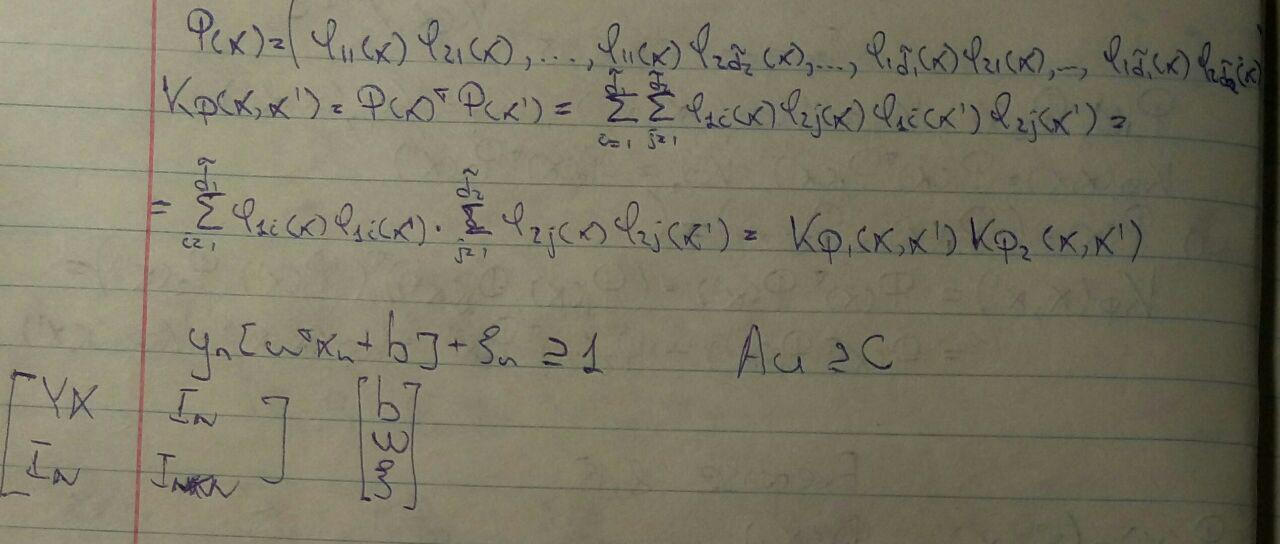 Φ(x)=(φ₁₁(x)φ₂₁(x),...,φ₁₁(x)φ₂d̃₂(x),...,φ₁d̃₁(x)φ₂₁(x),...,φ₁d̃₁(x)φ₂d̃₂(x)
K_Φ(x,x') = Φ(x)ᵀ Φ(x') = ∑_{i=1}^{d̃₁} ∑_{j=1}^{d̃₂} φ₁i(x)φ₂j(x)φ₁i(x')φ₂j(x') =
= ∑_{i=1}^{d̃₁} φ₁i(x)φ₁i(x') · ∑_{j=1}^{d̃₂} φ₂j(x)φ₂j(x') = K_Φ₁(x,x') K_Φ₂(x,x')
yₙ[wᵀxₙ + b] + ξₙ ≥ 1 Au ≥ C
[YX I_N] [b
w
I_N I_N] ξ]